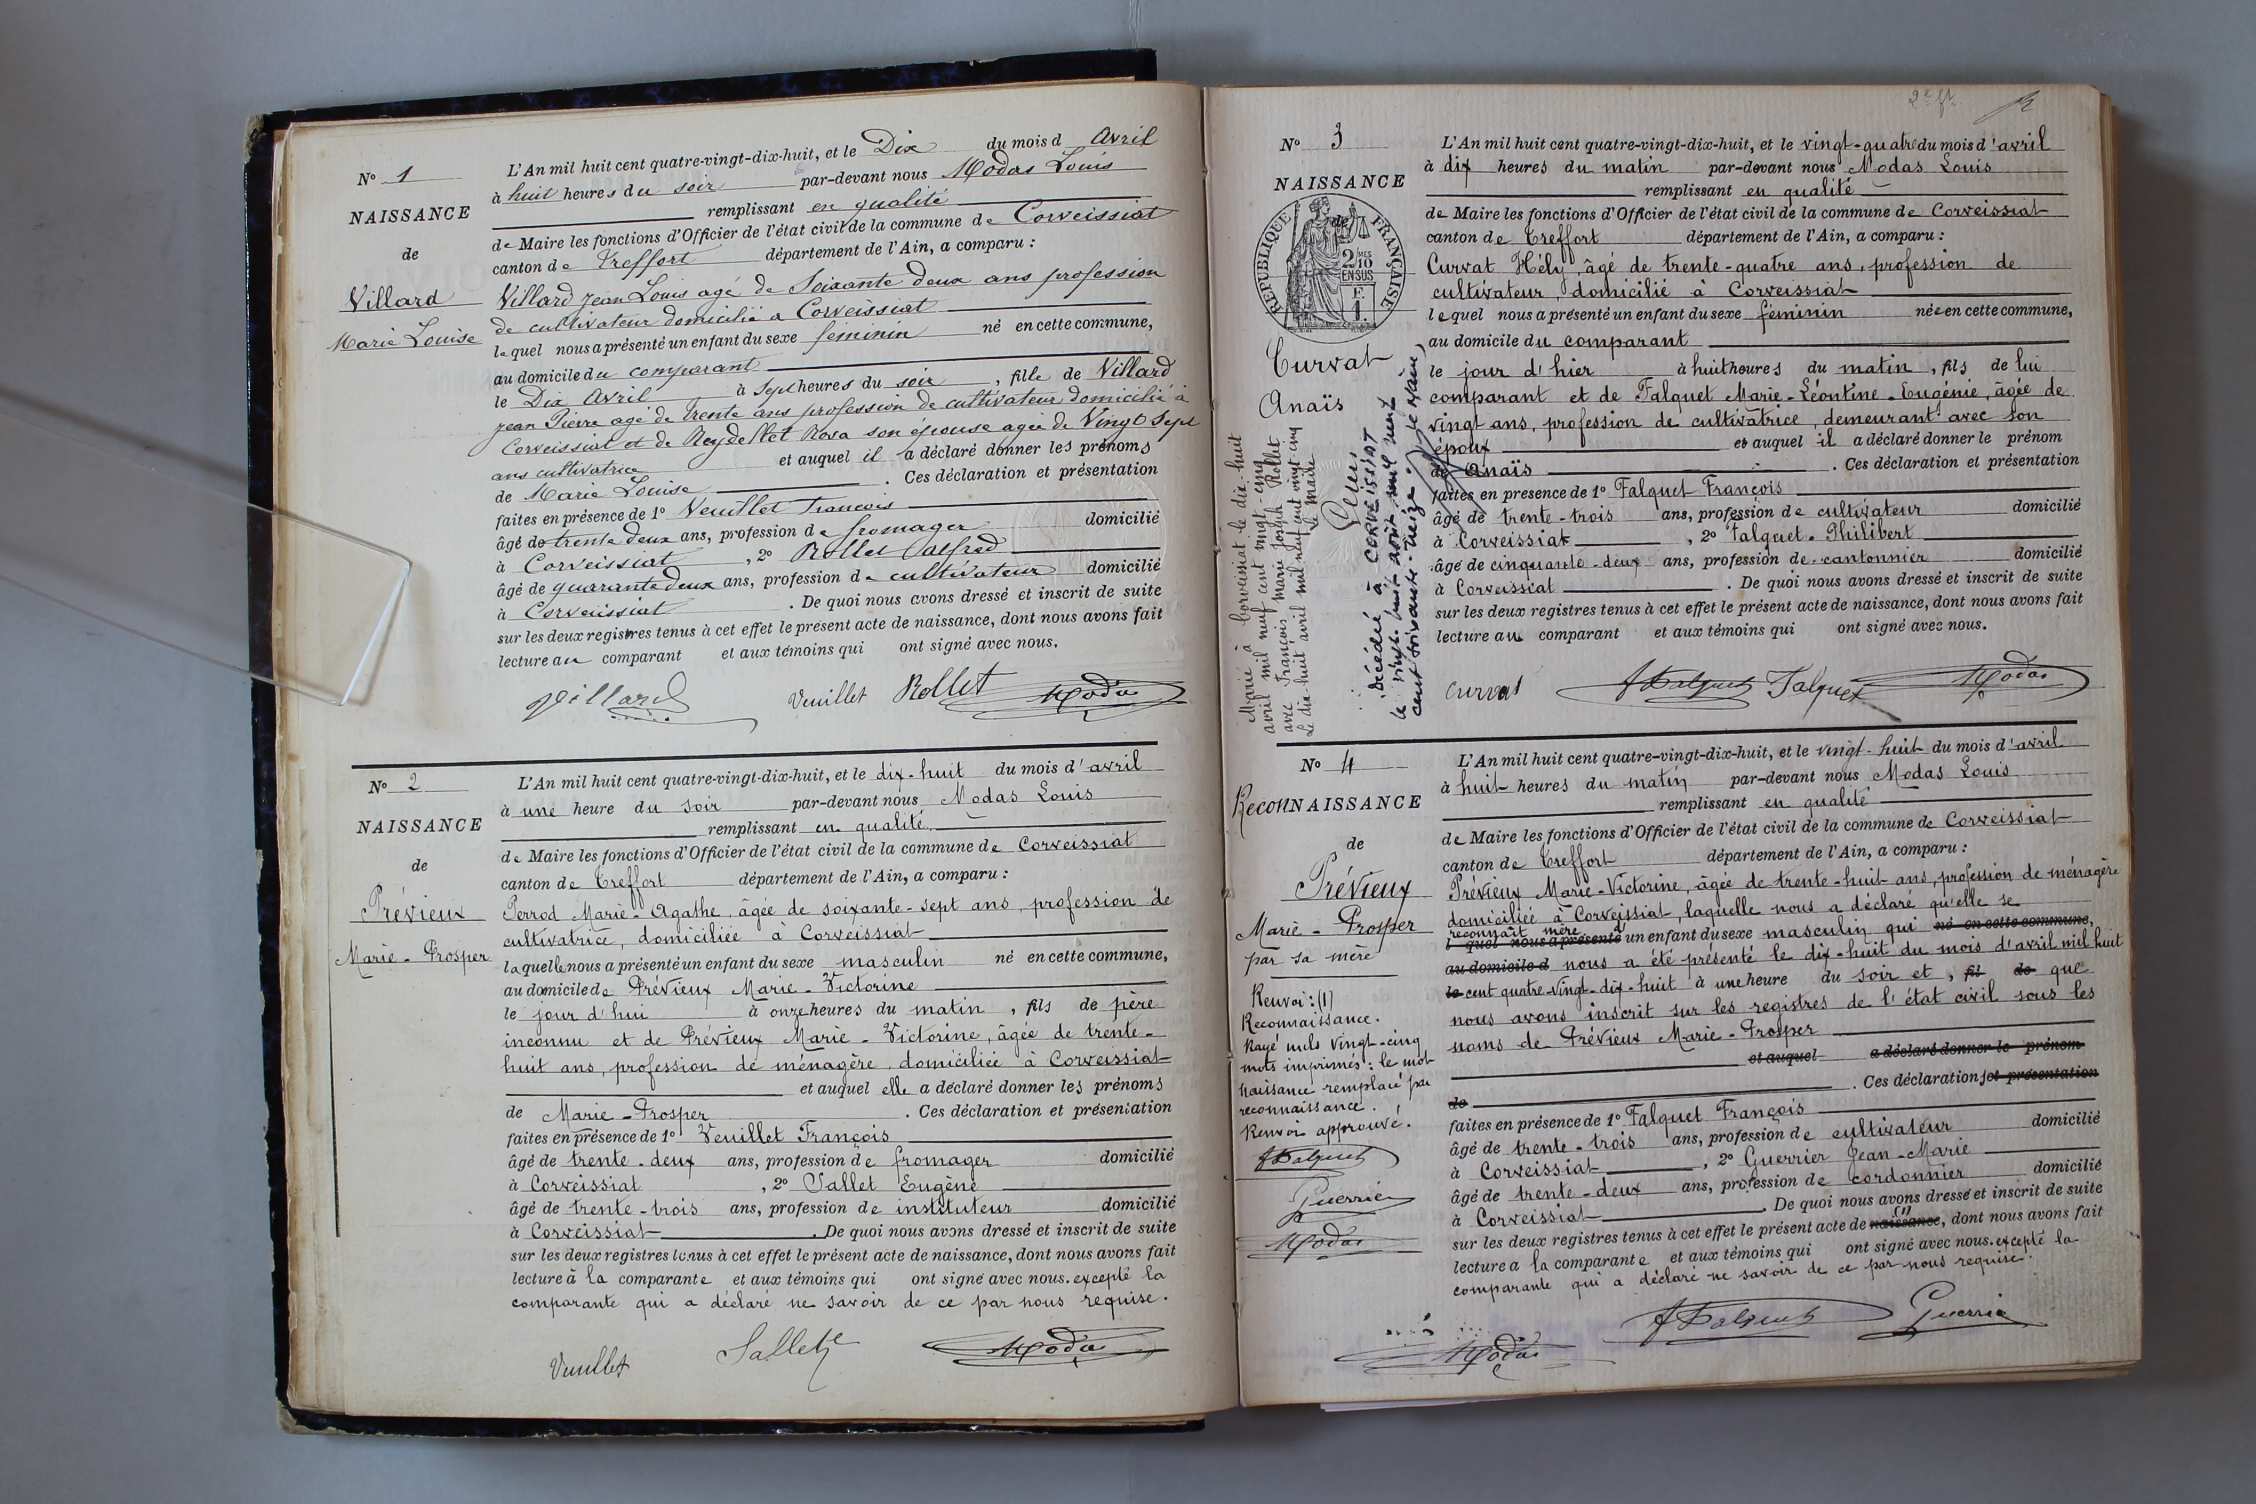 N° 1
NAISSANCE
de
Villard
Marie Louise
L'An mil huit cent quatre-vingt-dix-huit, et le Dix du mois d Avril
à huit heures du soir par-devant nous Modas Louis
remplissant en qualité
de Maire les fonctions d'Officier de l'état civil de la commune de Corveissiat
canton de Treffort département de l'Ain, a comparu :
Villard Jean Louis agé de Soixante deux ans profession
de cultivateur domicilié a Corveissiat
lequel nous a présenté un enfant du sexe féminin né en cette commune,
au domicile du comparant
le Dix Avril à sept heures du soir, fille de Villard
Jean Pierre agé de trente ans profession de cultivateur domicilié à
Corveissiat et de Reydellet Rosa son epouse agée de Vingt Sept
ans cultivatrice et auquel il a déclaré donner les prénoms
de Marie Louise. Ces déclaration et présentation
faites en présence de 1° Veuillet Francois
âgé de trente deux ans, profession de fromager domicilié
à Corveissiat, 2° Rollet Alfred
âgé de quarante deux ans, profession de cultivateur domicilié
à Corveissiat. De quoi nous avons dressé et inscrit de suite
sur les deux registres tenus à cet effet le présent acte de naissance, dont nous avons fait
lecture au comparant et aux témoins qui ont signé avec nous.
Villard Veuillet Rollet Modas
N° 2
NAISSANCE
de
Prévieux
Marie-Prosper
L'An mil huit cent quatre-vingt-dix-huit, et le dix-huit du mois d'avril
à une heure du soir par-devant nous Modas Louis
remplissant en qualité
de Maire les fonctions d'Officier de l'état civil de la commune de Corveissiat
canton de Treffort département de l'Ain, a comparu :
Perrod Marie-Agathe, âgée de soixante-sept ans, profession de
cultivatrice, domiciliée à Corveissiat
laquelle nous a présenté un enfant du sexe masculin né en cette commune,
au domicile de Prévieux Marie-Victorine
le jour d'hui à onze heures du matin, fils de père
inconnu et de Prévieux Marie-Victorine, âgée de trente-
huit ans, profession de ménagère, domiciliée à Corveissiat
et auquel elle a déclaré donner les prénoms
de Marie-Prosper. Ces déclaration et présentation
faites en présence de 1° Veuillet François
âgé de trente-deux ans, profession de fromager domicilié
à Corveissiat, 2° Sallet Eugène
âgé de trente-trois ans, profession de instituteur domicilié
à Corveissiat. De quoi nous avons dressé et inscrit de suite
sur les deux registres tenus à cet effet le présent acte de naissance, dont nous avons fait
lecture à la comparante et aux témoins qui ont signé avec nous. excepté la
comparante qui a déclaré ne savoir de ce par nous requise.
Veuillet Sallet Modas
N° 3
NAISSANCE
de
RÉPUBLIQUE FRANÇAISE
2/10 MES
EN SUS
F.
1.
Curvat
Anaïs
Marié à Corveissiat le dix-huit
avril mil neuf cent vingt-cinq
avec François Marie Joseph Rollet
Le dix-huit avril mil neuf cent vingt cinq
Le Maire
Décédée à CORVEISSIAT
le vingt-huit août mil neuf
cent soixante-treize. Le Maire,
L'An mil huit cent quatre-vingt-dix-huit, et le vingt-quatre du mois d'avril
à dix heures du matin par-devant nous Modas Louis
remplissant en qualité
de Maire les fonctions d'Officier de l'état civil de la commune de Corveissiat
canton de Treffort département de l'Ain, a comparu :
Curvat Hély, âgé de trente-quatre ans, profession de
cultivateur, domicilié à Corveissiat
lequel nous a présenté un enfant du sexe féminin née en cette commune,
au domicile du comparant
le jour d'hier à huit heures du matin, fils de lui
comparant et de Falquet Marie-Léontine-Eugénie, âgée de
vingt ans, profession de cultivatrice, demeurant avec son
époux et auquel il a déclaré donner le prénom
de Anaïs. Ces déclaration et présentation
faites en présence de 1° Falquet François
âgé de trente-trois ans, profession de cultivateur domicilié
à Corveissiat, 2° Falquet-Philibert
âgé de cinquante-deux ans, profession de cantonnier domicilié
à Corveissiat. De quoi nous avons dressé et inscrit de suite
sur les deux registres tenus à cet effet le présent acte de naissance, dont nous avons fait
lecture au comparant et aux témoins qui ont signé avec nous.
Curvat Falquet Falquet Modas
N° 4
ReconNAISSANCE
de
Prévieux
Marie-Prosper
par sa mère
Renvoi : (1)
Reconnaissance.
Rayé nuls vingt-cinq
mots imprimés : le mot
naissance remplacé par
reconnaissance.
Renvoi approuvé.
Falquet
Guerrier
Modas
L'An mil huit cent quatre-vingt-dix-huit, et le vingt-huit du mois d'avril
à huit heures du matin par-devant nous Modas Louis
remplissant en qualité
de Maire les fonctions d'Officier de l'état civil de la commune de Corveissiat
canton de Treffort département de l'Ain, a comparu :
Prévieux Marie-Victorine, âgée de trente-huit ans, profession de ménagère
domiciliée à Corveissiat, laquelle nous a déclaré qu'elle se
reconnaît mère d'
l quel nous a présenté un enfant du sexe masculin qui né en cette commune,
au domicile d nous a été présenté le dix-huit du mois d'avril mil huit
le cent quatre-vingt-dix-huit à une heure du soir et, fil de que
nous avons inscrit sur les registres de l'état civil sous les
noms de Prévieux Marie-Prosper
et auquel a déclaré donner le prénom
de. Ces déclarations et présentation
faites en présence de 1° Falquet François
âgé de trente-trois ans, profession de cultivateur domicilié
à Corveissiat, 2° Guerrier Jean-Marie
âgé de trente-deux ans, profession de cordonnier domicilié
à Corveissiat. De quoi nous avons dressé et inscrit de suite
sur les deux registres tenus à cet effet le présent acte de naissance (1), dont nous avons fait
lecture a la comparante et aux témoins qui ont signé avec nous. excepté la
comparante qui a déclaré ne savoir de ce par nous requise.
Modas Falquet Guerrier